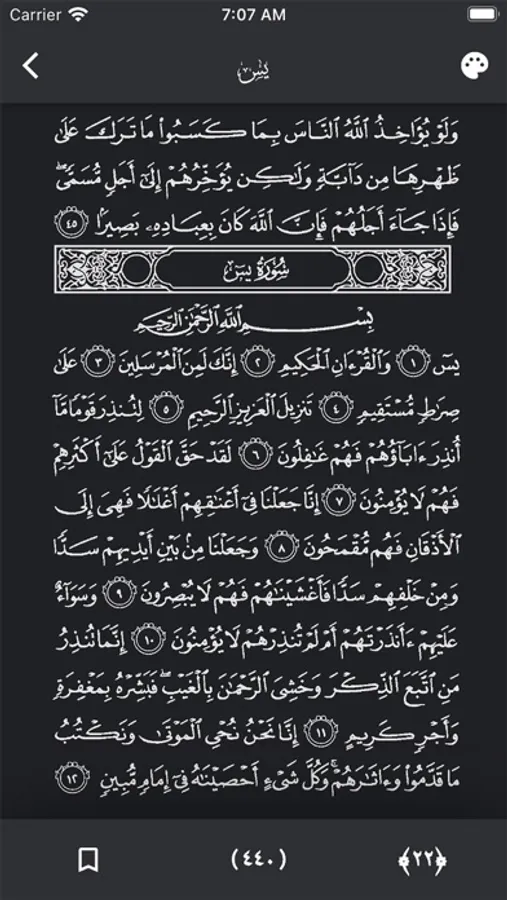 Carrier 7:07 AM
يسٓ
وَلَوْ يُؤَاخِذُ ٱللَّهُ ٱلنَّاسَ بِمَا كَسَبُوا۟ مَا تَرَكَ عَلَىٰ
ظَهْرِهَا مِن دَآبَّةٍ وَلَـٰكِن يُؤَخِّرُهُمْ إِلَىٰٓ أَجَلٍ مُّسَمًّى ۖ
فَإِذَا جَآءَ أَجَلُهُمْ فَإِنَّ ٱللَّهَ كَانَ بِعِبَادِهِۦ بَصِيرًۢا ٤٥
سُورَةُ يسٓ
بِسْمِ ٱللَّهِ ٱلرَّحْمَـٰنِ ٱلرَّحِيمِ
يسٓ ١ وَٱلْقُرْءَانِ ٱلْحَكِيمِ ٢ إِنَّكَ لَمِنَ ٱلْمُرْسَلِينَ ٣ عَلَىٰ
صِرَٰطٍ مُّسْتَقِيمٍ ٤ تَنزِيلَ ٱلْعَزِيزِ ٱلرَّحِيمِ ٥ لِتُنذِرَ قَوْمًا مَّآ
أُنذِرَ ءَابَآؤُهُمْ فَهُمْ غَـٰفِلُونَ ٦ لَقَدْ حَقَّ ٱلْقَوْلُ عَلَىٰٓ أَكْثَرِهِمْ
فَهُمْ لَا يُؤْمِنُونَ ٧ إِنَّا جَعَلْنَا فِىٓ أَعْنَـٰقِهِمْ أَغْلَـٰلًا فَهِىَ إِلَى
ٱلْأَذْقَانِ فَهُم مُّقْمَحُونَ ٨ وَجَعَلْنَا مِنۢ بَيْنِ أَيْدِيهِمْ سَدًّا
وَمِنْ خَلْفِهِمْ سَدًّا فَأَغْشَيْنَـٰهُمْ فَهُمْ لَا يُبْصِرُونَ ٩ وَسَوَآءٌ
عَلَيْهِمْ ءَأَنذَرْتَهُمْ أَمْ لَمْ تُنذِرْهُمْ لَا يُؤْمِنُونَ ١٠ إِنَّمَا تُنذِرُ
مَنِ ٱتَّبَعَ ٱلذِّكْرَ وَخَشِىَ ٱلرَّحْمَـٰنَ بِٱلْغَيْبِ ۖ فَبَشِّرْهُ بِمَغْفِرَةٍ
وَأَجْرٍ كَرِيمٍ ١١ إِنَّا نَحْنُ نُحْىِ ٱلْمَوْتَىٰ وَنَكْتُبُ
مَا قَدَّمُوا۟ وَءَاثَـٰرَهُمْ ۚ وَكُلَّ شَىْءٍ أَحْصَيْنَـٰهُ فِىٓ إِمَامٍ مُّبِينٍ ١٢
﴿٢٢﴾ (٤٤٠)